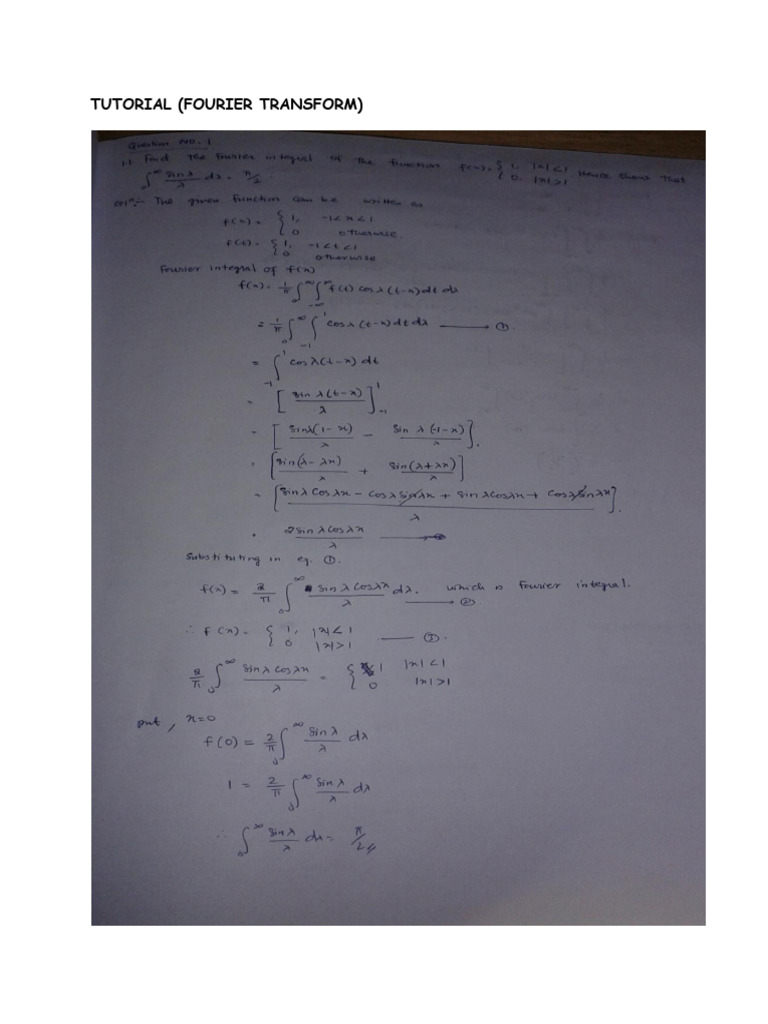 TUTORIAL (FOURIER TRANSFORM)
Question NO. 1
1.1 Find the Fourier integral of the function f(x)= { 1, |x|<1 0, |x|>1 Hence show that
∫₀^∞ sinλ/λ dλ = π/2.
solⁿ:- The given function can be written as
f(x) = { 1, -1<x<1
0 otherwise.
f(t) = { 1, -1<t<1
0 otherwise
Fourier integral of f(x)
f(x)= 1/π ∫₀^∞ ∫₋∞^∞ f(t) cosλ(t-x)dt dλ
= 1/π ∫₀^∞ ∫₋₁^1 cosλ(t-x)dt dλ ——— ①.
= ∫₋₁^1 cosλ(t-x) dt
= [ sinλ(t-x)/λ ]₋₁^1
= [ sinλ(1-x)/λ - sin λ(-1-x)/λ ].
= [ sin(λ-λx)/λ + sin(λ+λx)/λ ]
= [ sinλ cosλx - cosλ sinλx + sinλcosλx + cosλsinλx ]/λ.
= 2sinλcosλx/λ
Substituting in eq. ①.
f(x) = 2/π ∫₀^∞ sinλ cosλx/λ dλ. which is Fourier integral. ——— ②
∴ f(x) = { 1, |x|<1
0 |x|>1 —— ③.
2/π ∫₀^∞ sinλ cosλx/λ = { 1 |x|<1
0 |x|>1
put, x=0
f(0) = 2/π ∫₀^∞ sinλ/λ dλ
1 = 2/π ∫₀^∞ sinλ/λ dλ
∴ ∫₀^∞ sinλ/λ dλ = π/2